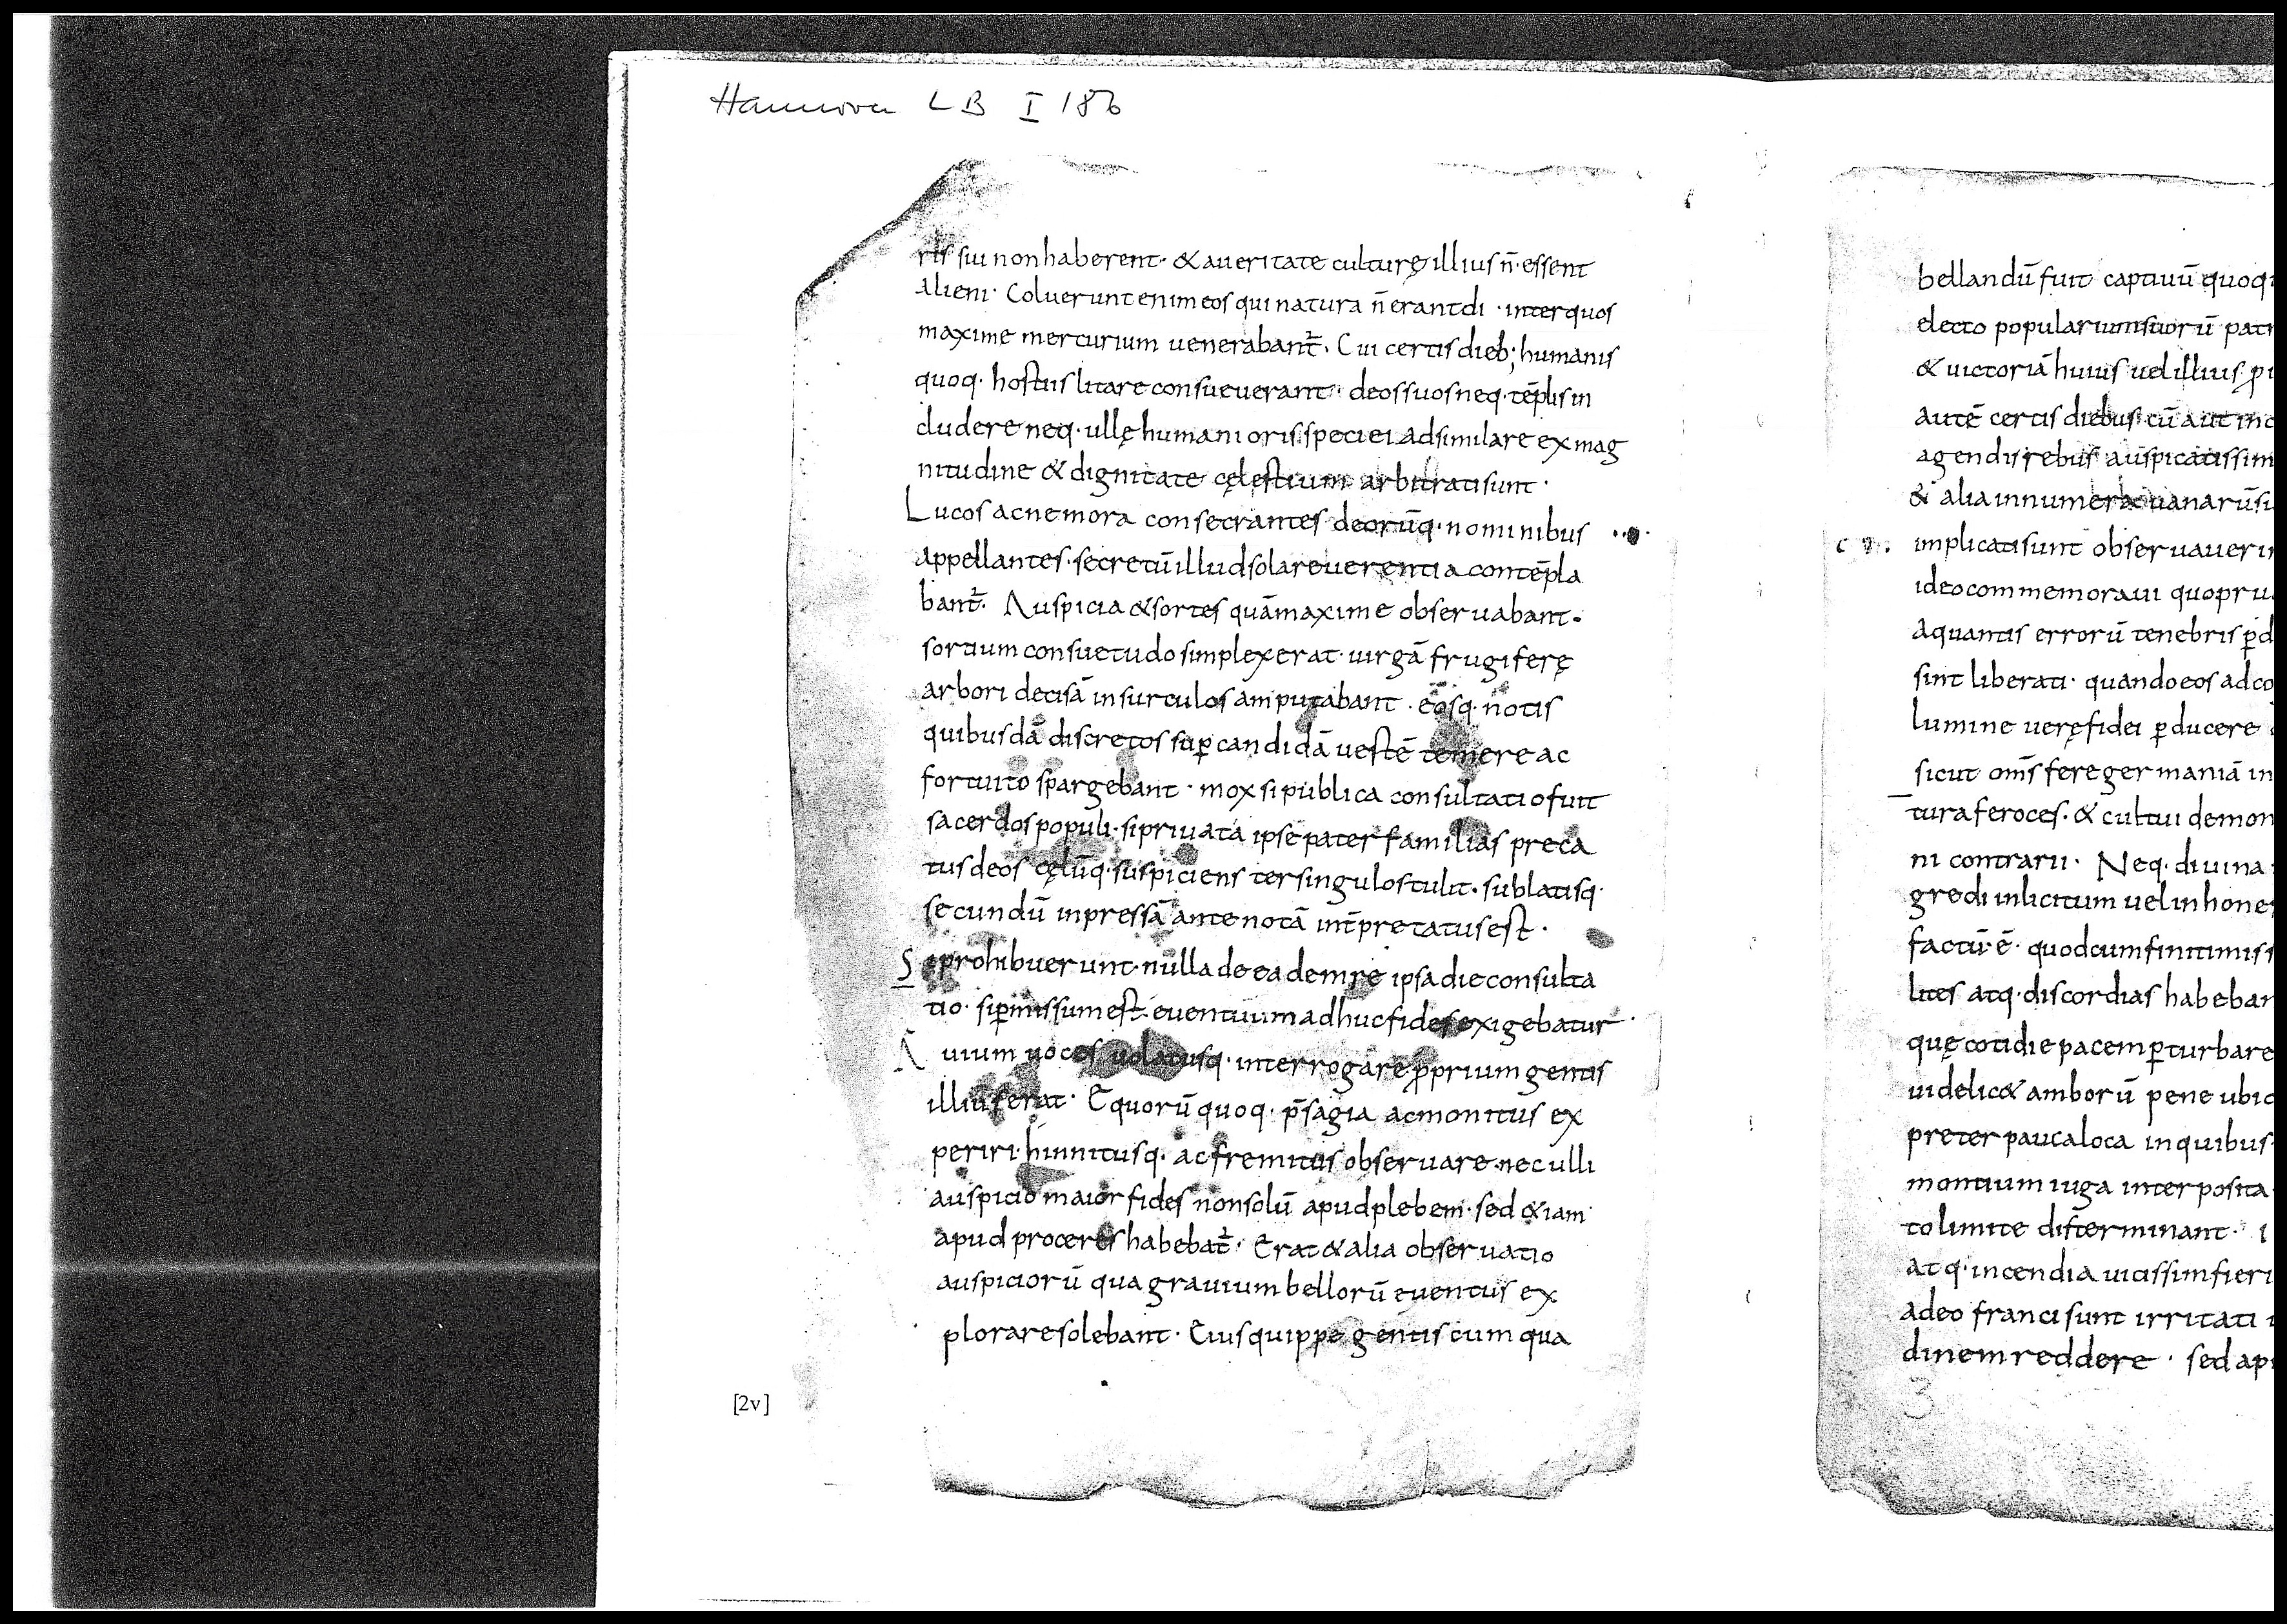 Hannover LB I 186
ris sui non haberent· & a ueritate culturę illius n̄· essent
alieni· Coluerunt enim eos qui natura n̄ erant di· inter quos
maxime mercurium uenerabant̄· Cui certis dieb; humanis
quoq· hostiis litare consueuerant· deos suos neq· tēplis in
cludere neq· ullę humani oris speciei adsimilare ex mag
nitudine & dignitate cęlestium arbitrati sunt·
Lucos ac nemora consecrantes deorūq· nominibus
appellantes· secretū illud sola reuerentia contēpla
bant̄· Auspicia & sortes quā maxime obseruabant·
sortium consuetudo simplex erat· uirgā frugiferę
arbori decisā in surculos amputabant· eosq· notis
quibusdā discretos sup̱ candidā uestē temere ac
fortuito spargebant· mox si publica consultatio fuit
sacerdos populi· si priuata ipse pater familias preca
tus deos cęlūq· suspiciens ter singulos tulit· sublatisq·
secundū inpressā ante notā int̄pretatus est·
Si prohibuerunt· nulla de eadem re ipsa die consulta
tio· si p̱missum est· euentuum adhuc fides exigebatur·
Auium uoces uolatusq· interrogare p̱prium gentis
illius erat· Equorū quoq· p̄sagia ac monitus ex
periri· hinnitusq· ac fremitus obseruare· nec ulli
auspicio maior fides non solū apud plebem· sed & iam
apud proceres habebat̄· Erat & alia obseruatio
auspiciorū qua grauium bellorū euentus ex
plorare solebant· Eius quippe gentis cum qua
[2v]
bellandū fuit captiuū quoq·
electo popularium suorū
& uictoriā huius uel illius
autē certis diebus· cū aut
agendis rebus
& alia innumera uanarū
implicati sunt
ideo commemoraui quo
a quantis errorū tenebris
sint liberati· quando eos ad
lumine uerę fidei p̱ducere
sicut om̄s fere germaniā
tura feroces· & cultui
ni contrarii· Neq· diuina
gredi inlicitum uel
factū ē· quod cum
lites atq· discordias
quę cotidie pacem p̱turbare
uidelic& amborū pene
preter pauca loca in quibus
montium iuga interposita
to limite disterminant·
atq· incendia uicissim
adeo franci sunt irritati
dinem reddere· sed
3